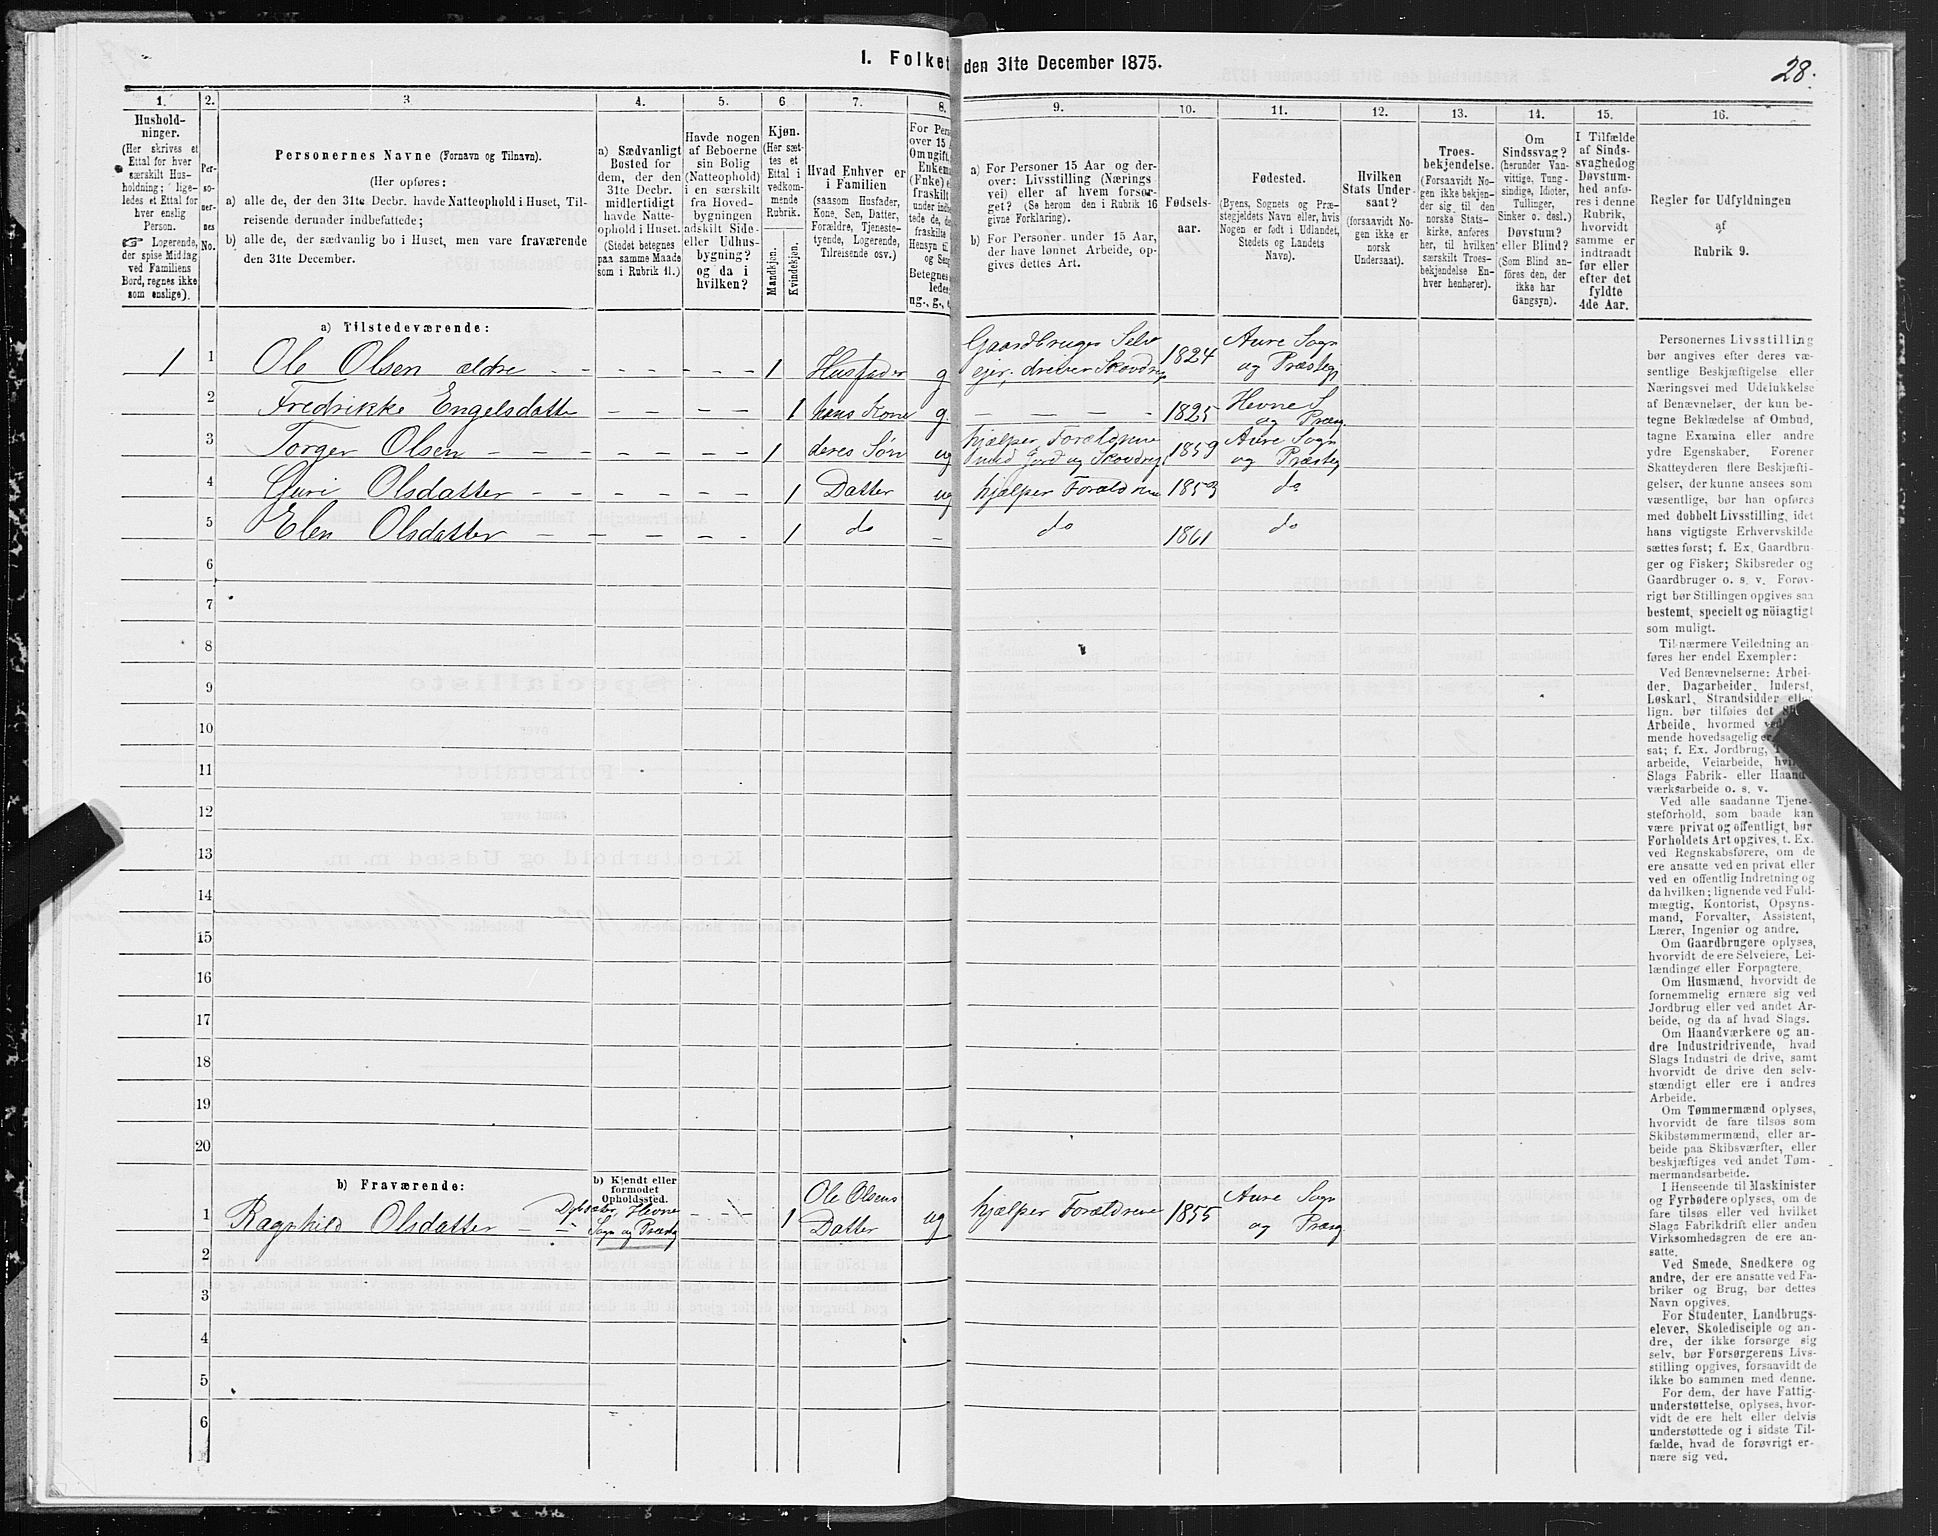 I. Folket
den 31te December 1875.
28.
1.
Hushold-
ninger.
(Her skrives et
Ettal for hver
særskilt Hus-
holdning; lige-
ledes et Ettal for
hver enslig
Person.
☞ Logerende,
der spise Middag
ved Familiens
Bord, regnes ikke
som enslige).
2.
Per-
so-
ner-
nes
No.
3
Personernes Navne (Fornavn og Tilnavn).
(Her opføres:
a) alle de, der den 31te Decbr. havde Natteophold i Huset, Til-
reisende derunder indbefattede;
b) alle de, der sædvanlig bo i Huset, men vare fraværende
den 31te December.
4.
a) Sædvanligt
Bosted for
dem, der den
31te Decbr.
midlertidigt
havde Natte-
ophold i Huset.
(Stedet betegnes
paa samme Maade
som i Rubrik 11.)
5.
Havde nogen
af Beboerne
sin Bolig
(Natteophold)
i en særskilt
fra Hoved-
bygningen
adskilt Side-
eller Udhus-
bygning?
og da i
hvilken?
6
Kjøn.
(Her sæt-
tes et
Ettal i
vedkom-
mende
Rubrik.
Mandkjøn.
Kvindekjøn.
7.
Hvad Enhver er
i Familien
(saasom Husfader,
Kone, Søn, Datter,
Forældre, Tjeneste-
tyende, Logerende,
Tilreisende osv.)
8.
For Pers
over 15
Om ugift,
Enkem
(Fnke) e
fraskilt
under indbe
tede de, de
fraskilte
Hensyn til
og Seng
Betegnes
ledes
ug., g., e
9.
a) For Personer 15 Aar og der-
over: Livsstilling (Nærings
vei) eller af hvem forsør-
get? (Se herom den i Rubrik 16
givne Forklaring).
b) For Personer under 15 Aar,
der have lønnet Arbeide, op-
gives dettes Art.
10.
Fødsels-
aar.
11.
Fødested.
(Byens, Sognets og Præ-
stegjeldets Navn eller, hvis
Nogen er født i Udlandet,
Stedets og Landets
Navn).
12.
Hvilken
Stats Under-
saat?
(forsaavidt No-
gen ikke er
norsk
Undersaat).
13.
Troes-
bekjendelse.
(Forsaavidt No-
gen ikke bekjen-
der sig til den
norske Stats-
kirke, anføres
her, til hvilken
særskilt Troes-
bekjendelse En-
hver henhører).
14.
Om
Sindssvag?
(herunder Van-
vittige, Tung-
sindige, Idioter,
Tullinger,
Sinker o. desl.)
Døvstum?
eller Blind?
(Som Blind an-
føres den, der
ikke har
Gangsyn).
15.
I Tilfælde
af Sinds-
svaghed og
Døvstum-
hed anfø-
res i denne
Rubrik,
hvorvidt
samme er
indtraadt
før eller
efter det
fyldte
4de Aar.
16.
Regler for Udfyldningen
af
Rubrik 9.
a) Tilstedeværende:
1 1 Ole Olsen ældre 1 Husfader g Gaardbruger Selv
ejer, driver Skovdrig 1824 Aure Sogn
og Præsteg
2 Fredrikke Engelsdatter 1 hans Kone g. 1825 Hevne S
og Præsg.
3 Torger Olsen 1 deres Søn ug hjælper Forældrene
med Jord og Skovdrig 1859 Aure Sogn
og Præsteg
4 Guri Olsdatter 1 Datter ug hjælper Forældrene 1853 do
5 Elen Olsdatter 1 do do 1861 do
6
7
8
9
10
11
12
13
14
15
16
17
18
19
20
b) Fraværende:
b) Kjendt eller
formodet
Opholdssted.
1 Ragnhild Olsdatter Hevne
Sogn og Præstg 1 Ole Olsens
Datter ug hjælper Forældrene 1855 Aure Sogn
og Præsg
2
3
4
5
6
Personernes Livsstilling
bør angives efter deres væ-
sentlige Beskjæftigelse eller
Næringsvei med Udelukkelse
af Benævnelser, der kun be-
tegne Beklædelse af Ombud,
tagne Examina eller andre
ydre Egenskaber. Forener
Skatteyderen flere Beskjæfti-
gelser, der kunne ansees som
væsentlige, bør han opføres
med dobbelt Livsstilling, idet
hans vigtigste Erhvervskilde
sættes først; f. Ex. Gaardbru-
ger og Fisker; Skibsreder og
Gaardbruger o. s. v. Forøv-
rigt bør Stillingen opgives saa
bestemt, specielt og nöiagtigt
som muligt.
Til nærmere Veiledning an-
føres her endel Exempler:
Ved Benævnelserne: Arbei-
der, Dagarbeider, Inderst,
Løskarl, Strandsidder eller
lign. bør tilføies det
Arbeide, hvormed ved
mende hovedsagelig er
sat; f. Ex. Jordbrug,
arbeide, Veiarbeide,
Slags Fabrik- eller Haand
værksarbeide o. s. v.
Ved alle saadanne Tjene-
steforhold, som baade kan
være privat og offentligt, bør
Forholdets Art opgives, t. Ex.
ved Regnskabsførere, om de
ere ansatte ved en privat eller
ved en offentlig Indretning og
da hvilken; lignende ved Fuld-
mægtig, Kontorist, Opsyns-
mand, Forvalter, Assistent,
Lærer, Ingeniør og andre.
Om Gaardbrugere oplyses,
hvorvidt de ere Selveiere, Lei-
lændinge eller Forpagtere.
Om Husmænd, hvorvidt de
fornemmelig ernære sig ved
Jordbrug eller ved andet Ar-
beide, og da af hvad Slags.
Om Haandværkere og an-
dre Industridrivende, hvad
Slags Industri de drive, samt
hvorvidt de drive den selv-
stændigt eller ere i andres
Arbeide.
Om Tømmermænd oplyses,
hvorvidt de fare tilsøs som
Skibstømmermænd, eller ar-
beide paa Skibsværfter, eller
beskjæftiges ved andet Tøm-
mermandsarbeide.
I Henseende til Maskinister
og Fyrbødere oplyses, om de
fare tilsøs eller ved hvilket
Slags Fabrikdrift eller anden
Virksomhedsgren de ere an-
satte.
Ved Smede, Snedkere og
andre, der ere ansatte ved Fa-
briker og Brug, bør dettes
Navn opgives.
For Studenter, Landbrugs-
elever, Skoledisciple og an-
dre, der ikke forsørge sig
selv, bør Forsørgerens Livs-
stilling opgives, forsaavidt de
ikke bo sammen med denne.
For dem, der have Fattig-
understøttelse, oplyses, hvor-
vidt de ere helt eller delvis
understøttede og i sidste Til-
fælde, hvad de forøvrigt er-
nære sig ved.